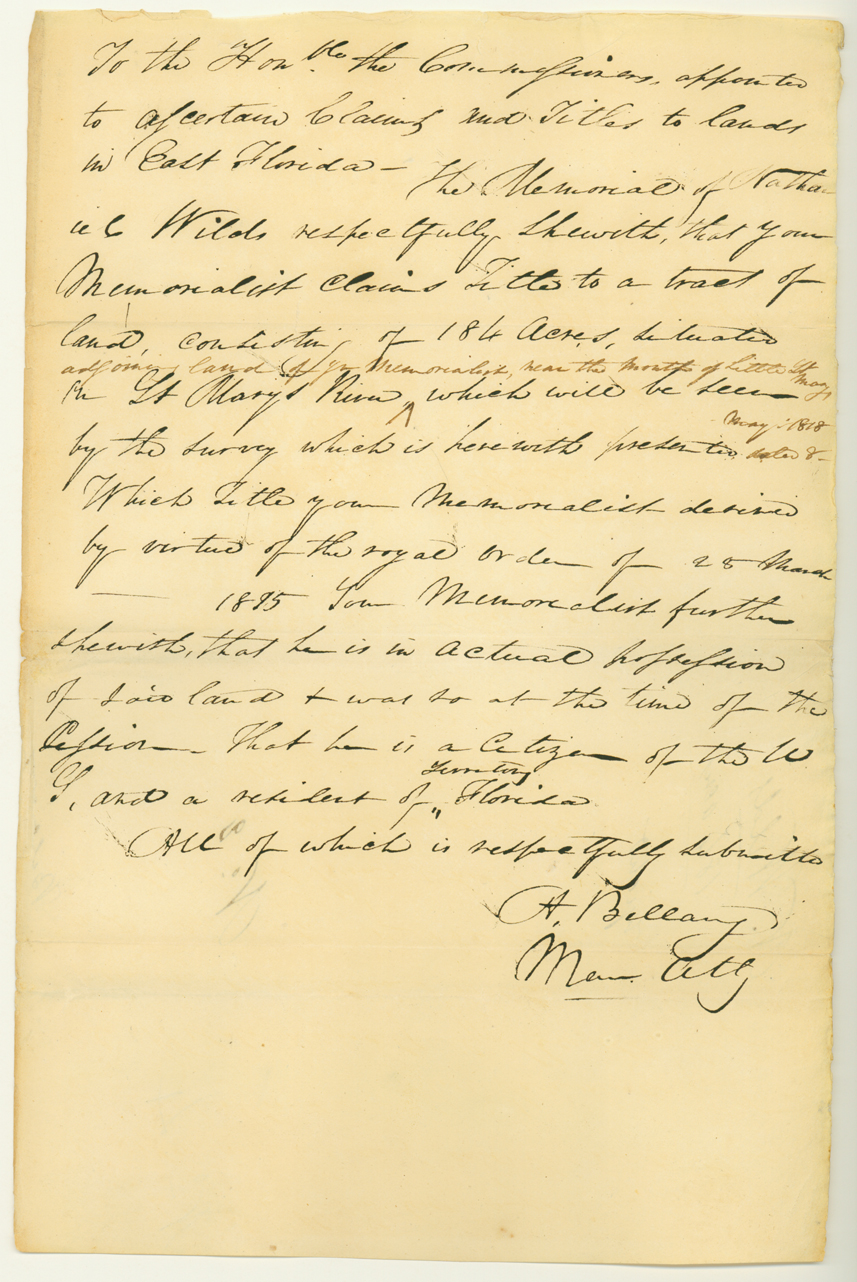 To the Hon^ble. the Commissioners, appointed
to ascertain Claims and Titles to lands
in East Florida — The Memorial of Nathan
iel Wilds respectfully shewith, that your
Memorialist claims Title to a tract of
land, consisting of 184 Acres, situated
adjoining land of yr Memorialist, near the Mouth of Little St Marys
in St Marys River ^ which will be seen
May 1818
by the survey which is herewith presented dated 8
Which Title your Memorialist derived
by virtue of the royal Order of 28 March
— 1815 Your Memorialist further
shewith, that he is in actual possession
of said land & was so at the time of the
Cession — That he is a Citizen of the U
Territory
S, and a resident of " Florida
All of which is respectfully submitted
A. Bellamy
Mem. Atty